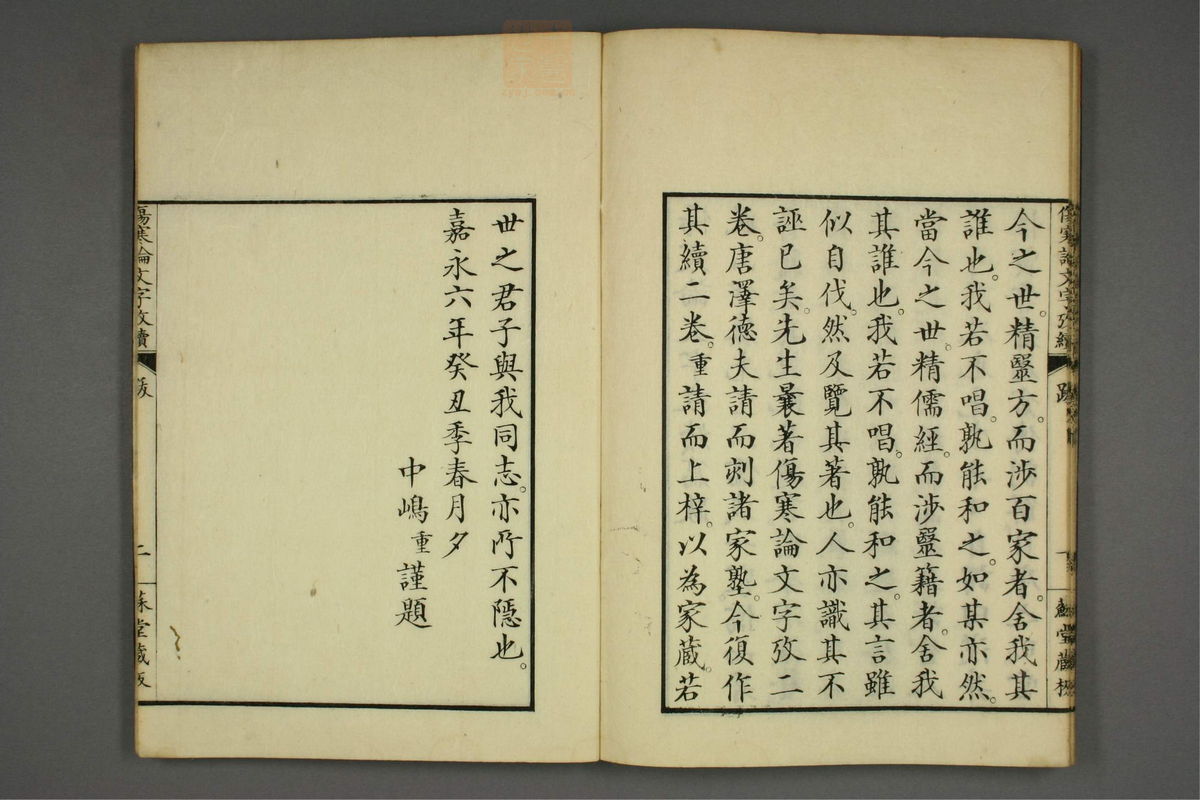 今之世。精毉方。而涉百家者。舍我其
誰也。我若不唱。孰能和之。如某亦然。
當今之世。精儒經。而涉毉籍者。舍我
其誰也。我若不唱。孰能和之。其言雖
似自伐。然及覽其著也。人亦識其不
誣已矣。先生曩著傷寒論文字攷二
卷。唐澤德夫請而刻諸家塾。今復作
其續二卷。重請而上梓。以為家蔵。若
世之君子與我同志。亦所不隱也。
嘉永六年癸丑季春月夕
中嶋重謹題
傷寒論文字攷續
跋
二
蘇堂藏板